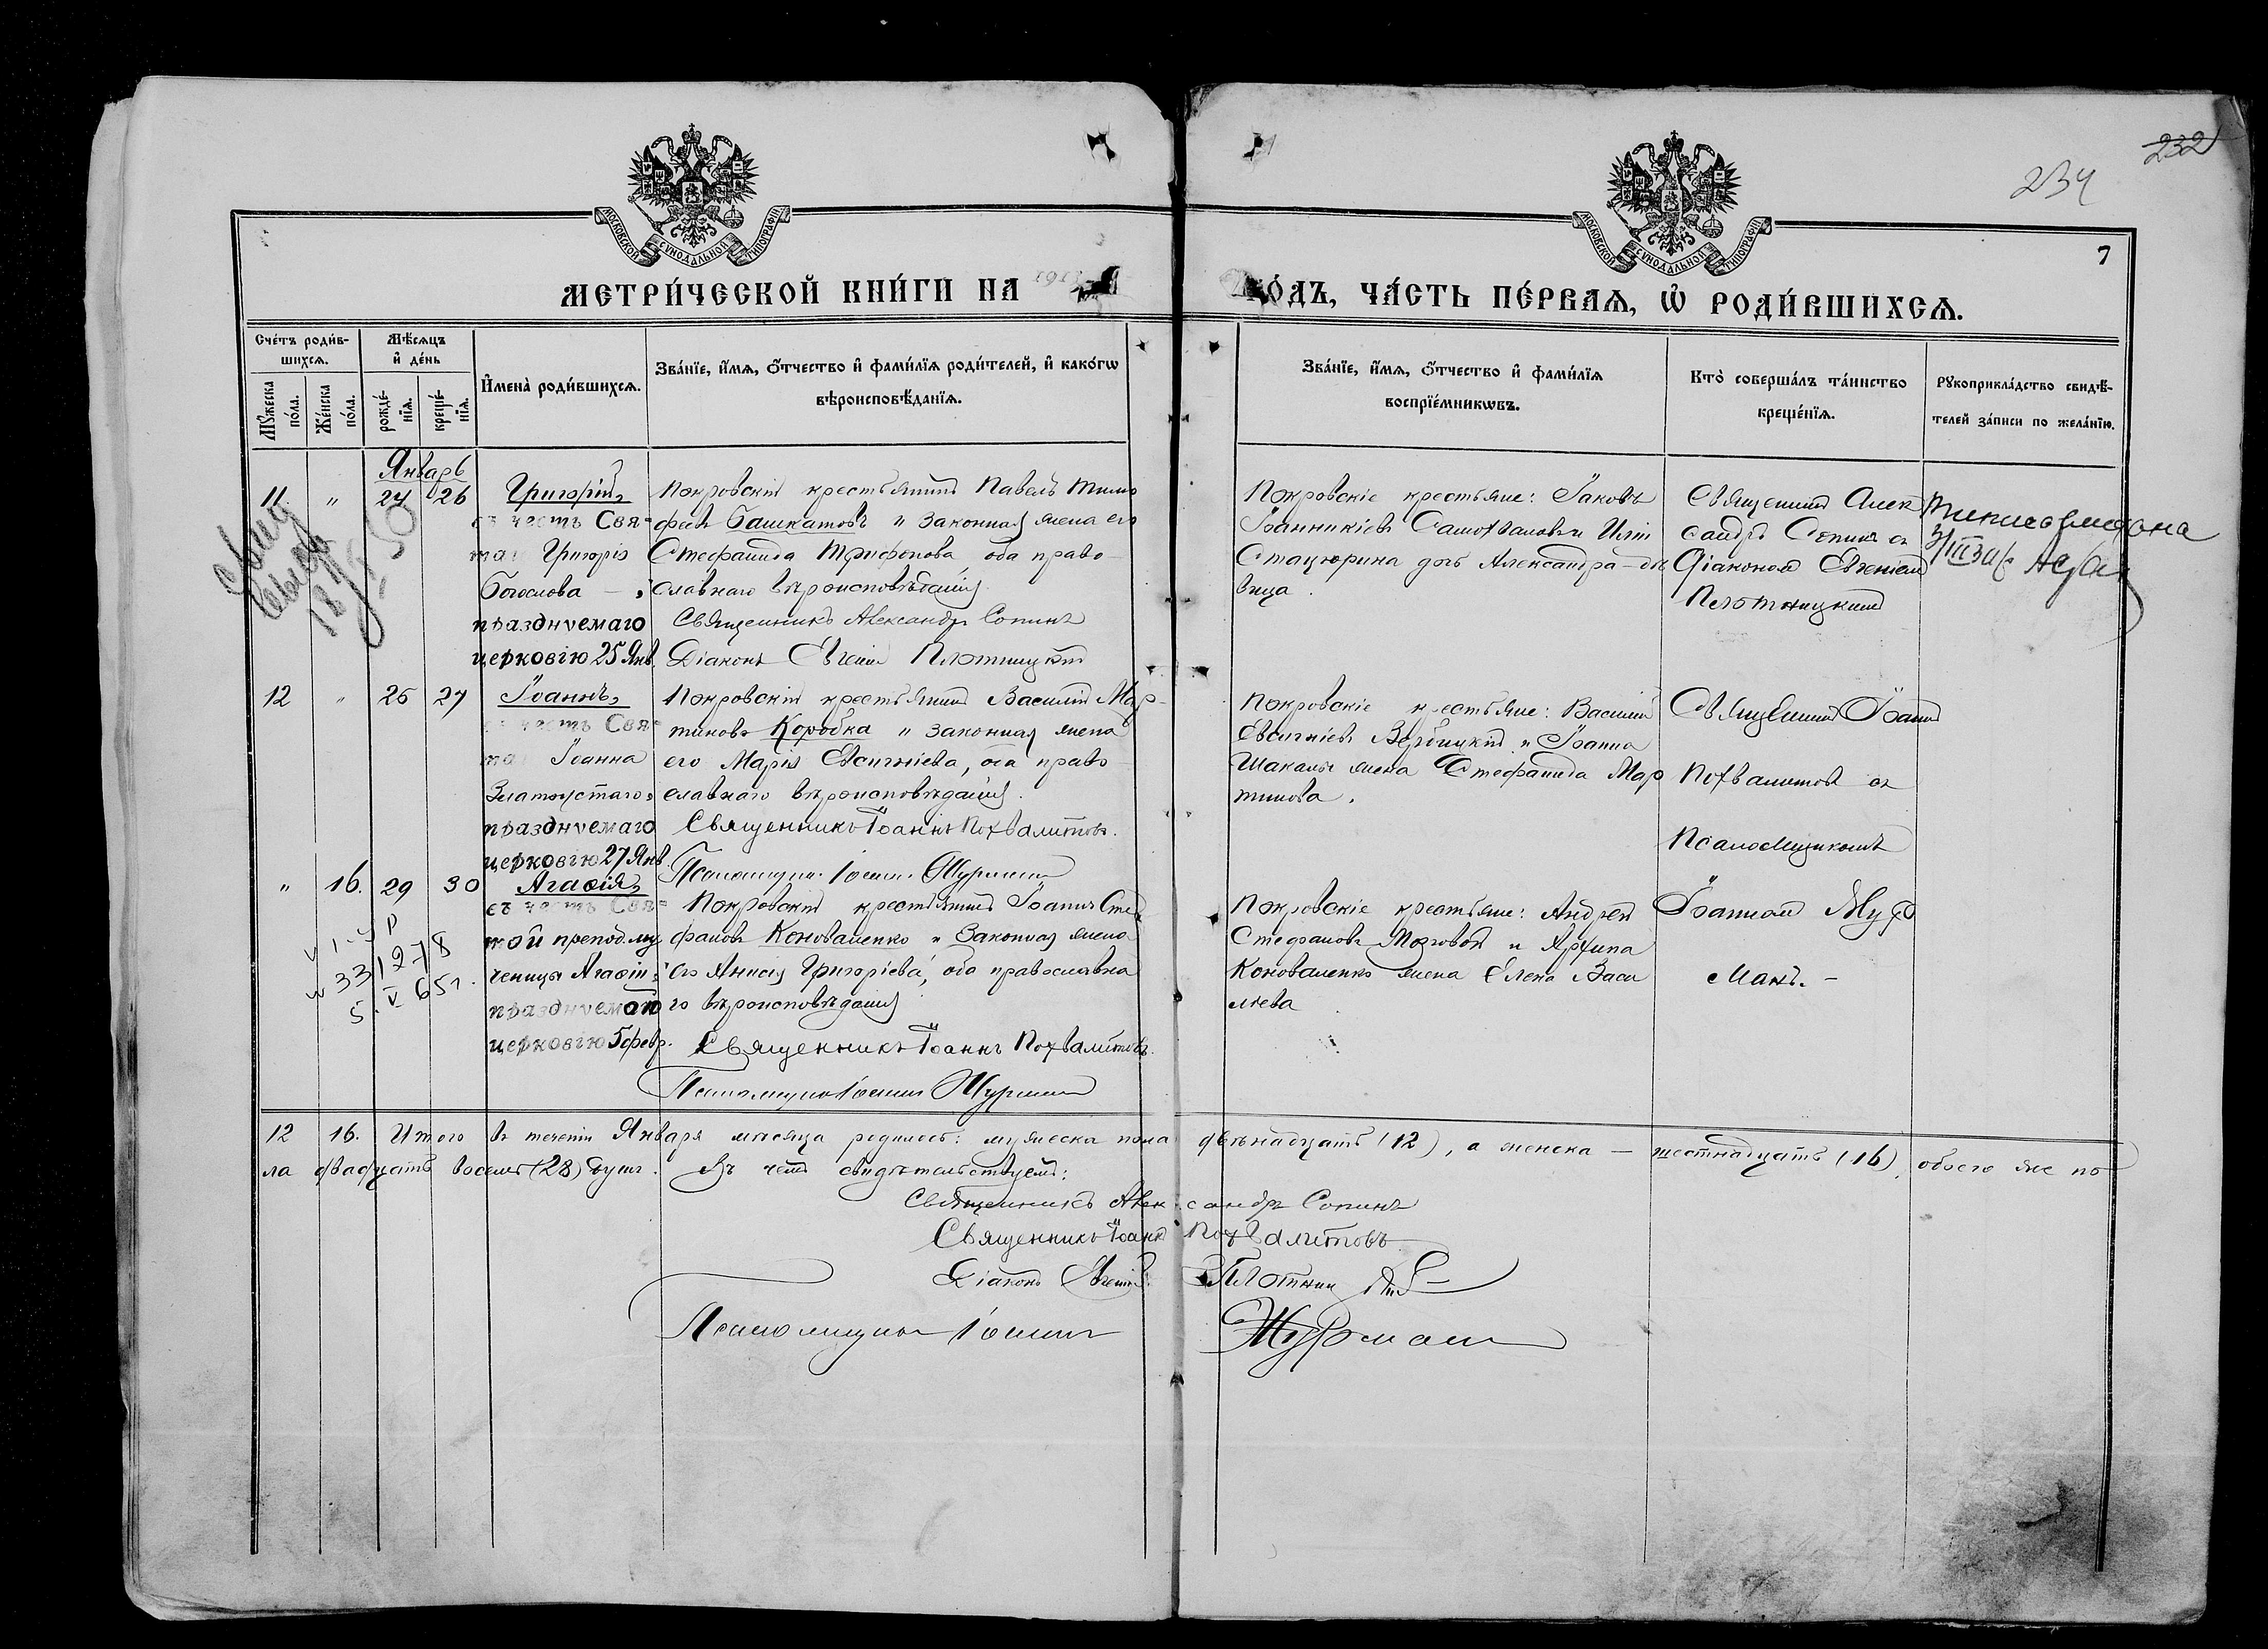 232
234
7
МОСКОВСКОЙ СѴНОДАЛЬНОЙ ТИПОГРАФІИ
МОСКОВСКОЙ СѴНОДАЛЬНОЙ ТИПОГРАФІИ
МЕТРИ́ЧЕСКОЙ КНИ́ГИ НА 1913
ГО́ДЪ, ЧА́СТЬ ПЕ́РВАѦ, Ѡ҆ РОДИ́ВШИХСѦ.
Сче́тъ роди́в-
шихсѧ.
Мꙋжеска по́ла.
Же́нска по́ла.
Мѣ́сѧцъ
и҆ де́нь
рожде́-
нїѧ.
креще́-
нїѧ.
И҆мена̀ роди́вшихсѧ.
Зва́нїе, и҆́мѧ, о҆́тчество и҆ фами́лїѧ роди́телей, и҆ како́гѡ
вѣроисповѣ́данїѧ.
Зва́нїе, и҆́мѧ, о҆́тчество и҆ фами́лїѧ
воспрїе́мникѡвъ.
Кто̀ соверша́лъ та́инство
креще́нїѧ.
Рꙋкоприкла́дство свидѣ́-
телей за́писи по жела́нїю.
Январь
11. " 24 26
Григорій,
въ честь Свя-
та Григорія
Богослова
празднуемаго
церковію 25 Янв.
Покровскій крестьянинъ Павелъ Тимо
феевъ Башкатовъ и законная жена его
Стефанида Трифонова, оба право-
славнаго вѣроисповѣданія
Священникъ Александръ Сопинъ
Діаконъ Евгеній Плотницкій
Покровскіе крестьяне: Іаковъ
Іоанникіевъ Самохваловъ и Иліи
Стацюрина дочь Александра - дѣ
вица.
Священникъ Алек
сандръ Сопинъ съ
Діакономъ Евгеніемъ
Плотницкимъ
12 " 25 27
Іоаннъ,
въ честь Свя-
та Іоанна
Златоустаго,
празднуемаго
церковію 27 Янв.
Покровскій крестьянинъ Василій Мар-
тиновъ Коробка и законная жена
его Марія Евсигніева, оба право-
славнаго вѣроисповѣданія.
Священникъ Іоаннъ Похвалитовъ.
Псаломщикъ Іоаннъ Журманъ
Покровскіе крестьяне: Василій
Евсигніевъ Вербицкій и Іоанна
Шакалы жена Стефанида Мар
тинова.
Священникъ Іоаннъ
Похвалитовъ съ
Псаломщикомъ
" 16. 29 30
Агаѳія,
въ честь Свя-
той преподму
ченицы Агаѳіи
празднуемой
церковію 5 февр.
Покровскій крестьянинъ Іоаннъ Сте
фановъ Коноваленко и Законная жена
его Анисія Григоріева, оба православна
го вѣроисповѣданія
Священникъ Іоаннъ Похвалитовъ.
Псаломщикъ Іоаннъ Журманъ
Покровскіе крестьяне: Андрей
Стефановъ Мозговой и Архипа
Коноваленко жена Елена Васи
льева
Іоанномъ Жур
манъ. -
12 16. Итого въ теченіи Января мѣсяца родилось: мужеска пола двѣнадцать (12), а женска - шестнадцать (16), обоего же по
ла двадцать восемь (28) душъ. Въ чемъ свидѣтельствуемъ:
Священникъ Александръ Сопинъ
Священникъ Іоаннъ Похвалитовъ
Діаконъ Евгеній Плотницкій
Псаломщикъ Іоаннъ Журманъ